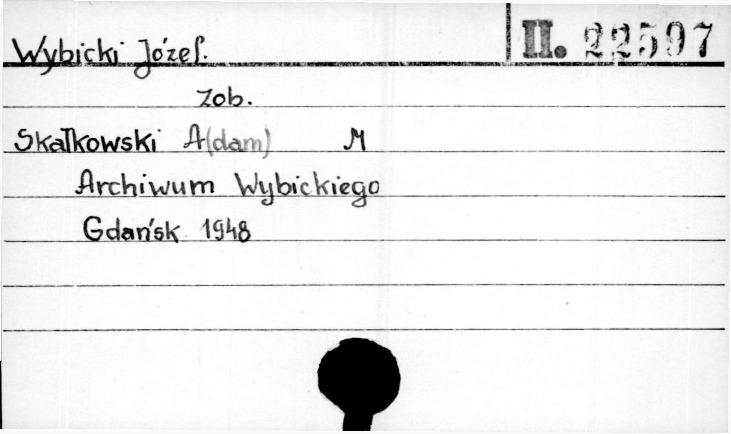 Wybicki Józef. II. 22597
zob.
Skałkowski A(dam) M
Archiwum Wybickiego
Gdańsk 1948